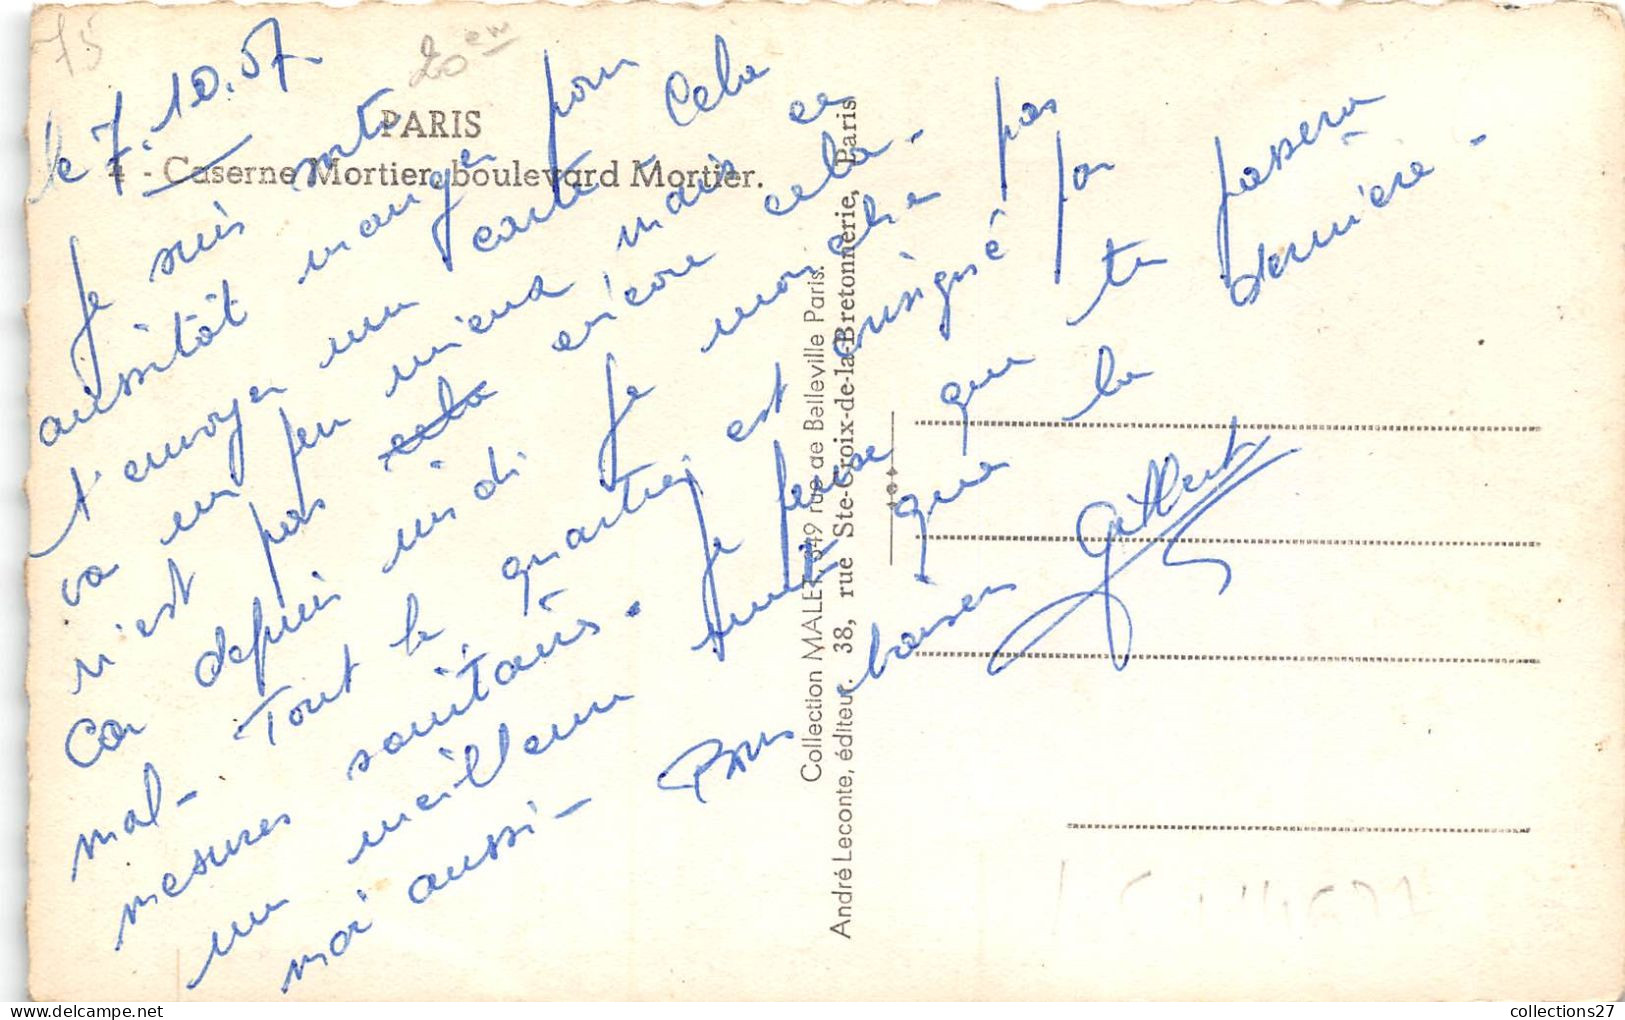 75
20em
le 7.10.57
PARIS
4 - Caserne Mortier, boulevard Mortier.
Je suis sorti
aussitôt manger pour
t'envoyer une carte Cela
va un peu mieux mais ce
n'est pas cela encore cela -
Car depuis midi je
mal - Tout le quartier est consigné par
mesures sanitaires. Je pense que tu passera
une meilleure nuit que la dernière -
moi aussi - Bons baisers
Gilbert
Collection MALET, 349 rue de Belleville Paris.
André Leconte, éditeur. 38, rue Ste-Croix-de-la-Bretonnerie, Paris
collections27